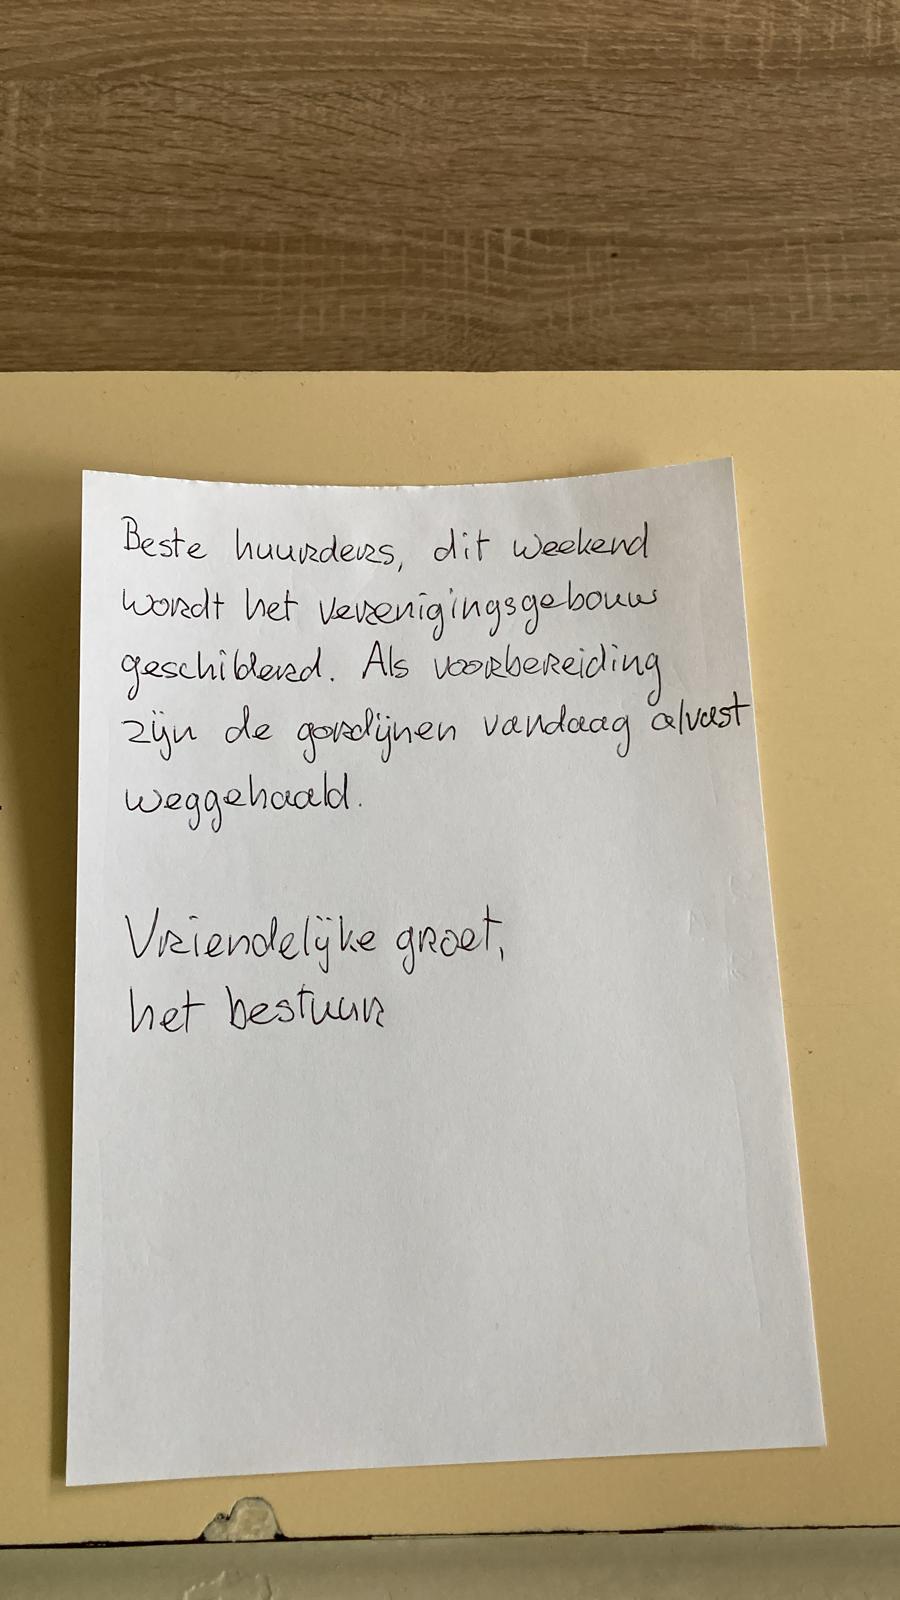 Beste huurders, dit weekend
wordt het verenigingsgebouw
geschilderd. Als voorbereiding
zijn de gordijnen vandaag alvast
weggehaald.
Vriendelijke groet,
het bestuur